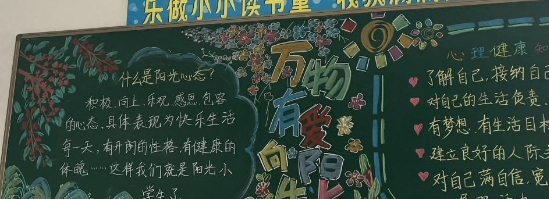 乐做小小读书童
什么是阳光心态？
积极、向上、乐观、感恩、包容
的心态。具体表现为快乐生活
每一天，有开朗的性格，有健康的
体魄……这样我们就是阳光小
学生了
万物
有爱
向阳
心理健康知
了解自己，接纳自己
对自己的生活负责
有梦想，有生活目标
建立良好的人际
对自己满自信，宽